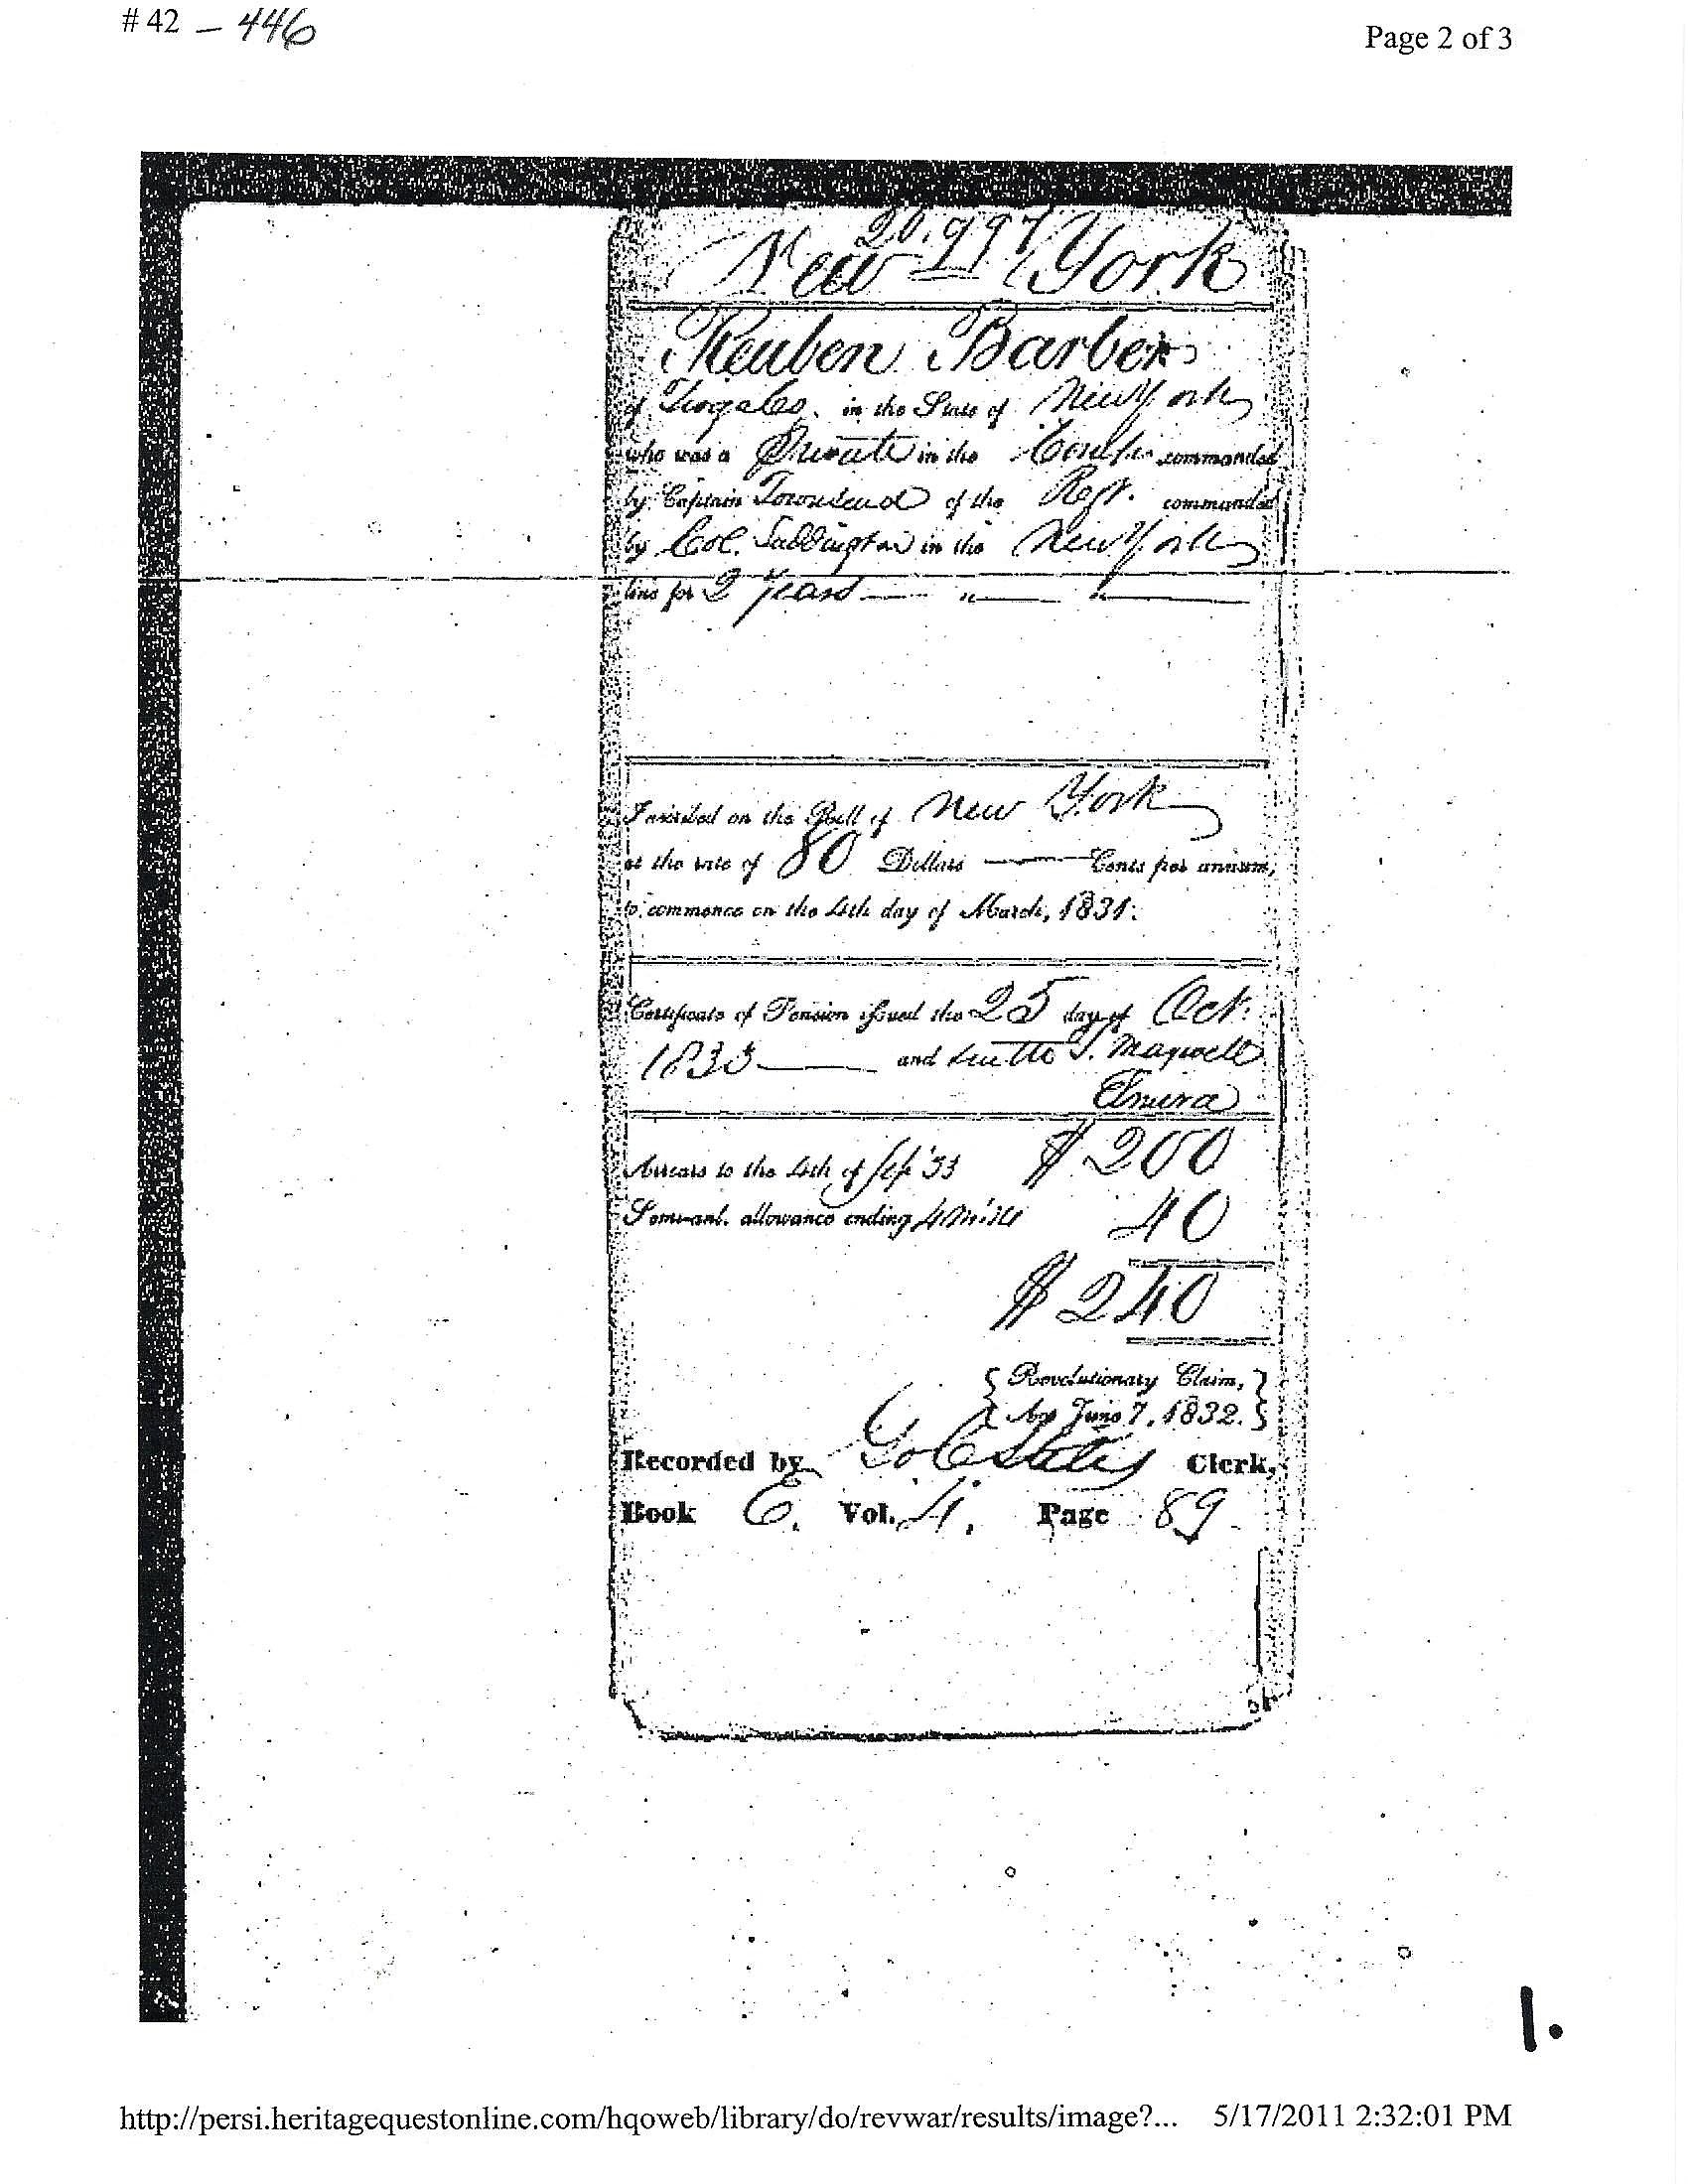 # 42 – 446
Page 2 of 3
20.997
New York
Reuben Barber
of Tioga Co. in the State of New York
who was a Private in the commanded
by Captain Townsend of the Regt. commanded
by Col. in the New York
line for 2 years — " — " —
Inscribed on the Roll of New York
at the rate of 80 Dollars — Cents per annum,
to commence on the 4th day of March, 1831.
Certificate of Pension issued the 25 day of Oct.
1833 — and T. Maxwell
Elmira
Arrears to the 4th of Sep '33 $ 200
Semi-anl. allowance ending 40
$ 240
{ Revolutionary Claim, }
{ Act June 7, 1832. }
Recorded by Clerk,
Book E. Vol. 4. Page 89
1.
http://persi.heritagequestonline.com/hqoweb/library/do/revwar/results/image?... 5/17/2011 2:32:01 PM